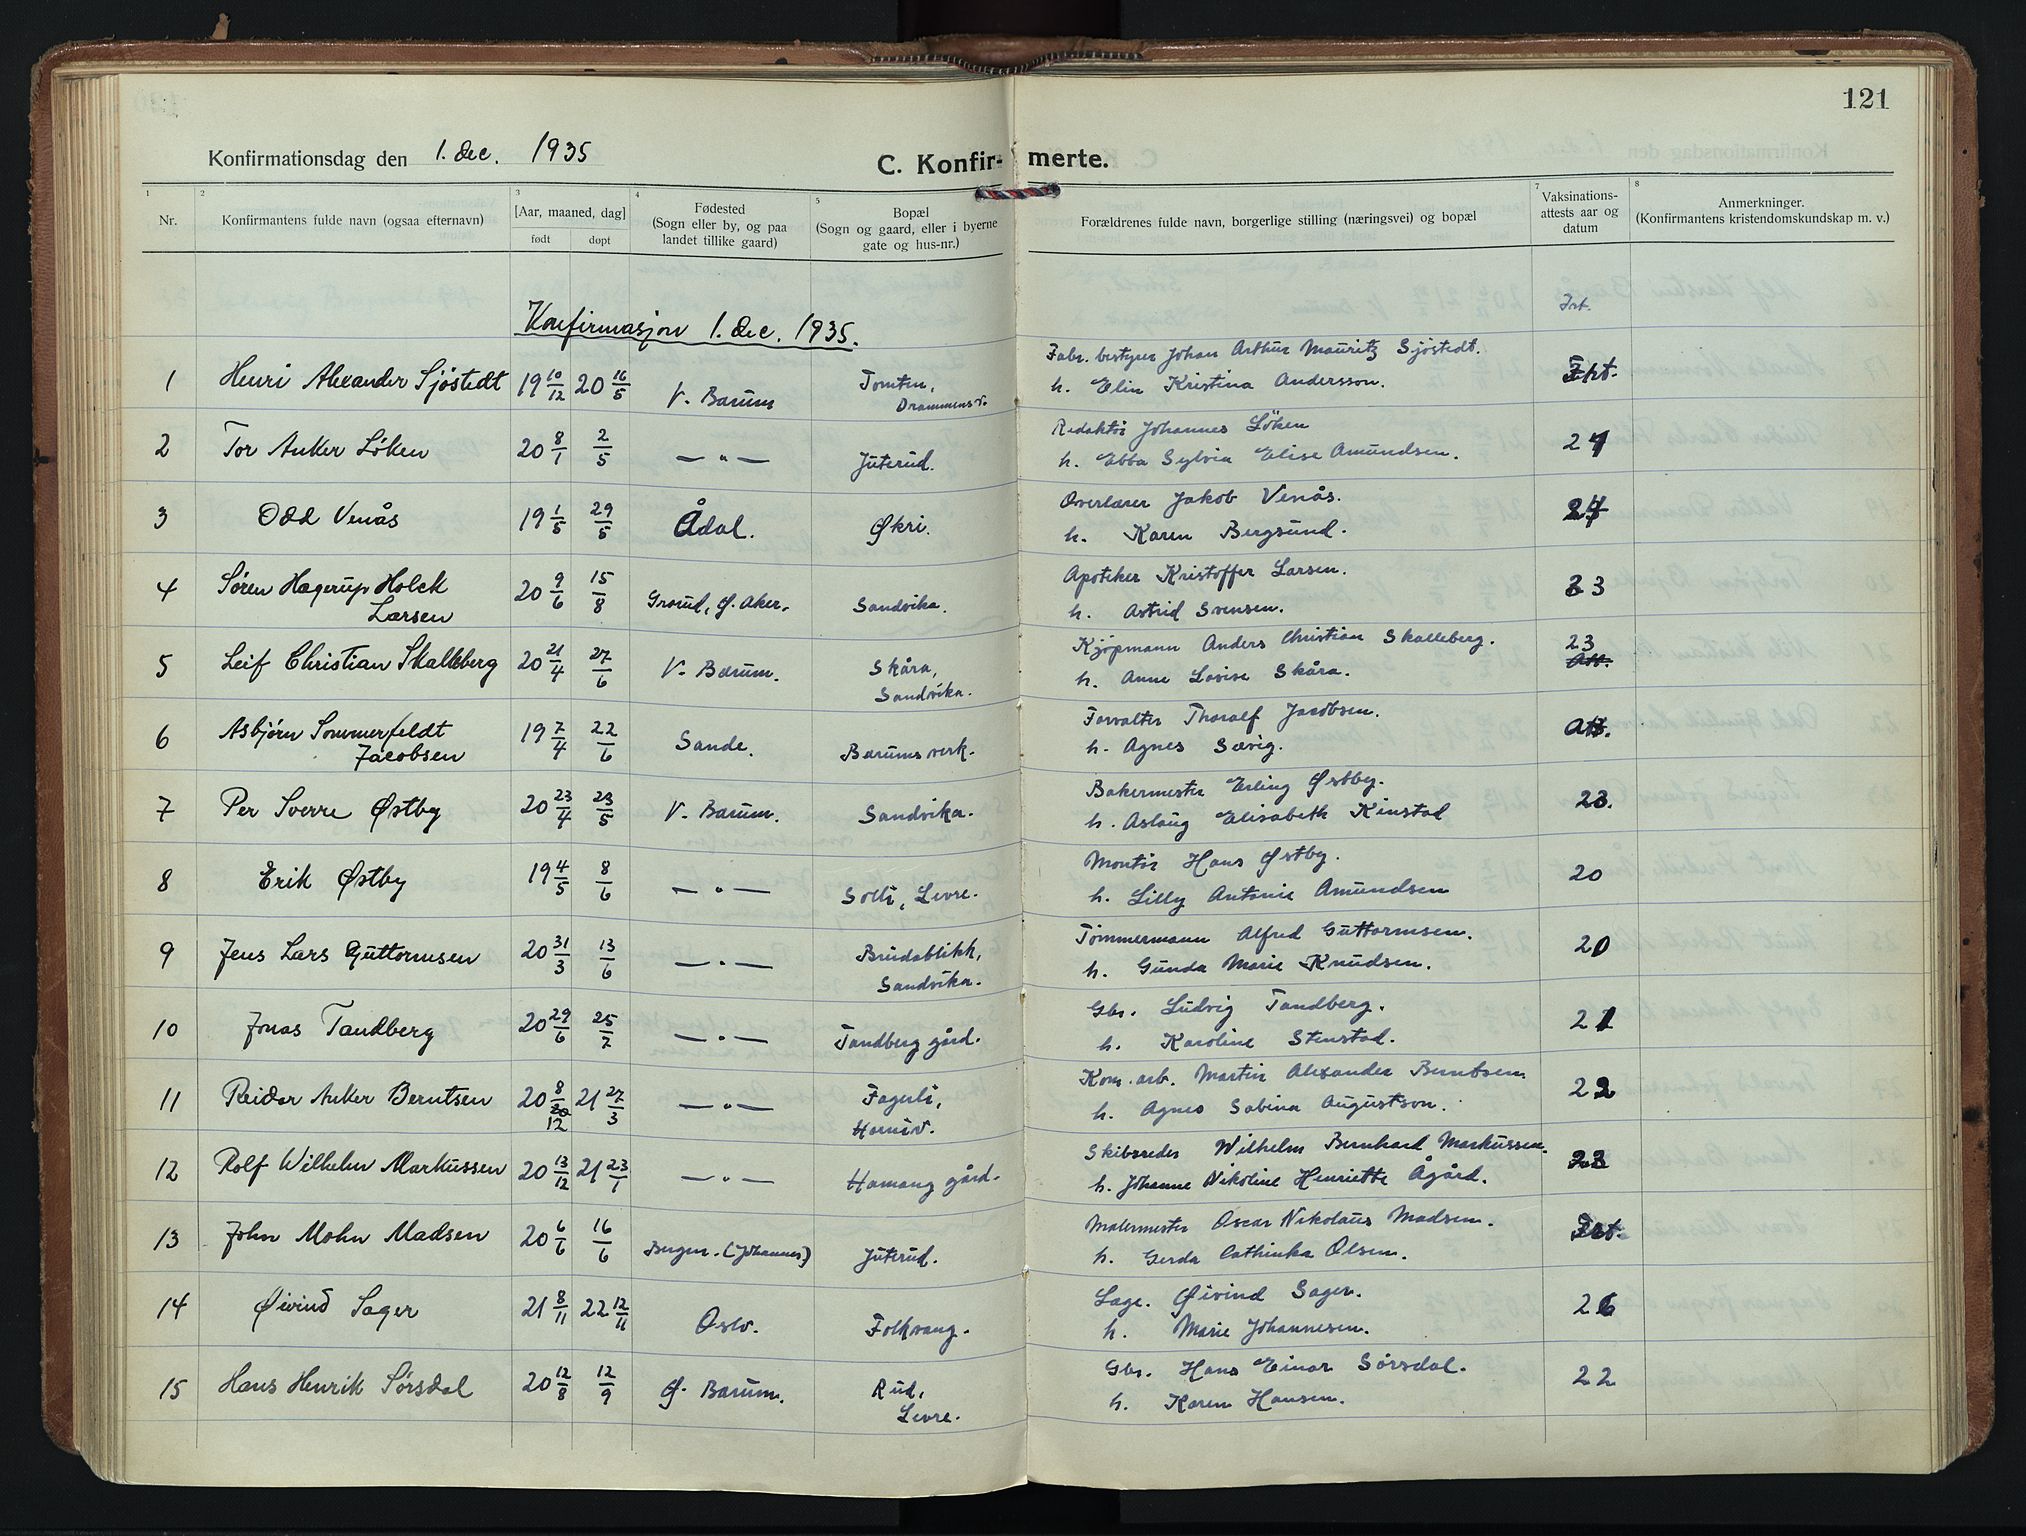 121
Konfirmationsdag den 1. dec. 1935
C. Konfirmerte.
1 2 3 4 5 7 8
Nr. Konfirmantens fulde navn (ogsaa efternavn) [Aar, maaned, dag] født døpt Fødested (Sogn eller by, og paa landet tillike gaard) Bopæl (Sogn og gaard, eller i byerne gate og hus-nr.) Forældrenes fulde navn, borgerlige stilling (næringsvei) og bopæl Vaksinationsattests aar og datum Anmerkninger. (Konfirmantens kristendomskundskap m. v.)
Konfirmasjon 1. dec. 1935.
1 Henri Alexander Sjöstedt 19 10/12 20 16/5 V. Bærum Tomten, Drammensv. Fabr. bestyrer Johan Arthur Mauritz Sjöstedt.
h. Elin Kristina Andersson.
2 Tor Anker Löken 20 8/1 2/5 — " — Juterud. Redaktör Johannes Löken 21
h. Ebba Sylvia Elise Amundsen.
3 Odd Venås 19 1/5 29/5 Ådal. Økri. Overlærer Jakob Venås. 24
h. Karen Bergsund.
4 Søren Hagerup Holck Larsen 20 9/6 15/8 Grorud, Ø. Aker. Sandvika. Apoteker Kristoffer Larsen. 23
h. Astrid Svensen.
5 Leif Christian Skalleberg 20 21/4 27/6 V. Bærum. Skåra, Sandvika. Kjöpmann Anders Christian Skalleberg. 23 Att.
h. Anne Lovise Skåra.
6 Asbjörn Sommerfeldt Jacobsen 19 7/4 22/6 Sande. Bærums verk. Forvalter Thoralf Jacobsen. Att.
h. Agnes Sævig.
7 Per Sverre Østby 20 23/4 23/5 V. Bærum. Sandvika. Bakermester Erling Østby. 23.
h. Aslaug Elisabeth Kinstad
8 Erik Østby 19 4/5 8/6 — " — Solli, Levre. Montör Hans Østby. 20
h. Lilly Antonie Amundsen
9 Jens Lars Guttormsen 20 31/3 13/6 — " — Brudablikk, Sandvika. Tömmermann Alfred Guttormsen. 20
h. Gunda Marie Knudsen.
10 Jonas Tandberg 20 29/6 25/7 — " — Tandberg gård. Gbr. Ludvig Tandberg. 21
h. Karoline Stenstad.
11 Reidar Anker Berntsen 20 8/12 20 21 27/3 — " — Fagerli, Horniv. Kom. arb. Martin Alexander Berntsen 22
h. Agnes Sabina Augustson.
12 Rolf Wilhelm Markussen 20 13/12 21 23/1 — " — Hamang gård. Skibsreder Wilhelm Bernhard Markussen. 23
h. Johanne Nikoline Henriette Ågård.
13 John Mohn Madsen 20 6/6 16/6 Bergen. (Johannes) Juterud. Malermester Oscar Nikolaus Madsen.
h. Gerda Cathinka Olsen.
14 Øivind Sager 21 8/11 22 12/11 Oslo. Folkvang. Lage. Øivind Sager. 26
h. Marie Johannesen.
15 Hans Henrik Sørsdal 20 12/8 12/9 Ø. Bærum. Rud, Levre. Gbr. Hans Einar Sörsdal. 22
h. Karen Hansen.